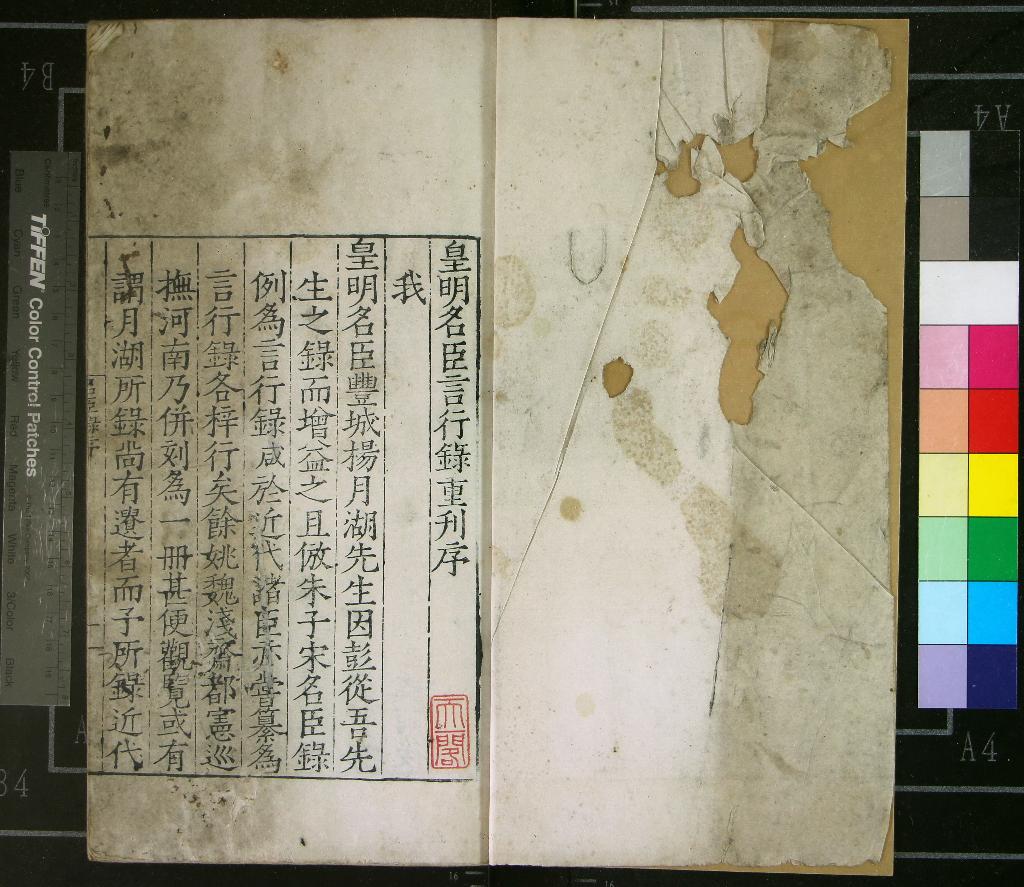 皇明名臣言行錄重刊序
我
皇明名臣豐城楊月湖先生因彭從吾先
生之錄而增益之且倣朱子宋名臣錄
例為言行錄咸於近代諸臣亦嘗纂為
言行錄各梓行矣餘姚魏淺齋都憲巡
撫河南乃併刻為一冊甚便觀覽或有
謂月湖所錄尚有遺者而予所錄近代
TIFFEN Color Control Patches
Blue Cyan Green Yellow Red Magenta White 3/Color Black
B4
A4
A4